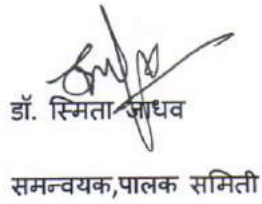 डॉ. स्मिता जाधव
समन्वयक,पालक समिती